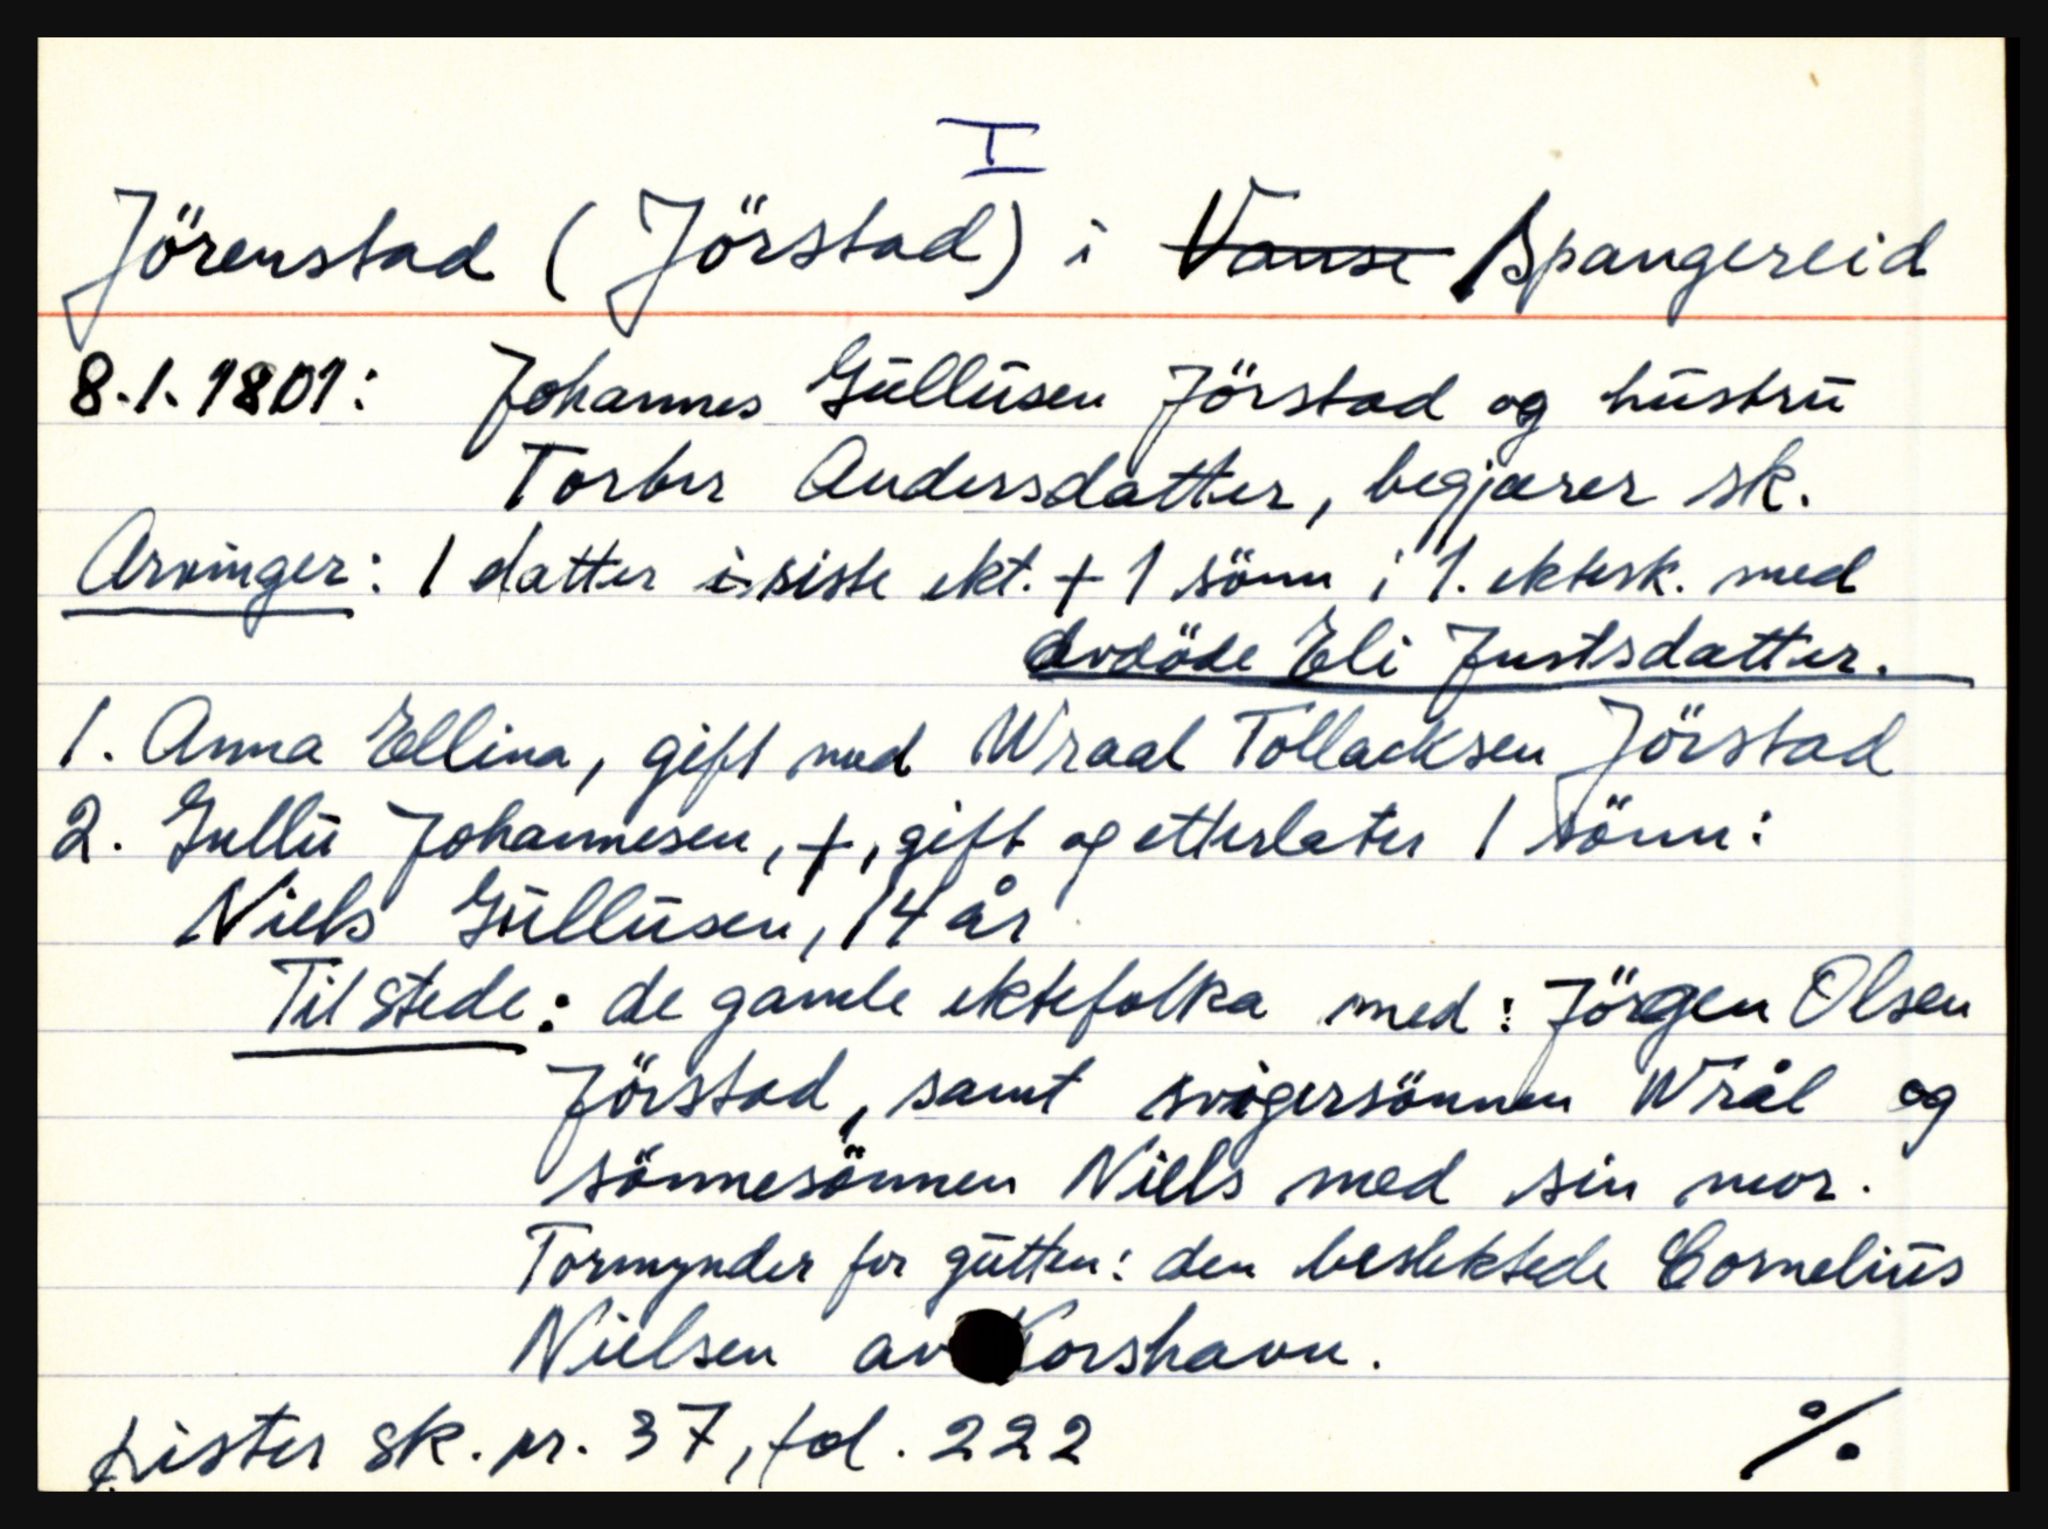 I
Jörenstad (Jörstad) i Vanse Spangereid
8.1.1801: Johannes Gullusen Jörstad og hustru
Torber Andersdatter, begjærer sk.
Arvinger: 1 datter i siste ekt. + 1 sönn i 1. ektesk. med
avdöde Eli Justsdatter.
1. Anna Ellina, gift med Wraal Tollacksen Jörstad
2. Gullu Johannesen, +, gift og etterlater 1 sönn:
Niels Gullusen, 14 år
Til stede: de gamle ektefolka med: Jörgen Olsen
Jörstad, samt svigersönnen Wrål og
sönnesönnen Niels med sin mor.
Formynder for gutten: den beslektede Cornelius
Nielsen av Korshavn.
Lister sk. pr. 37, fol. 222 %